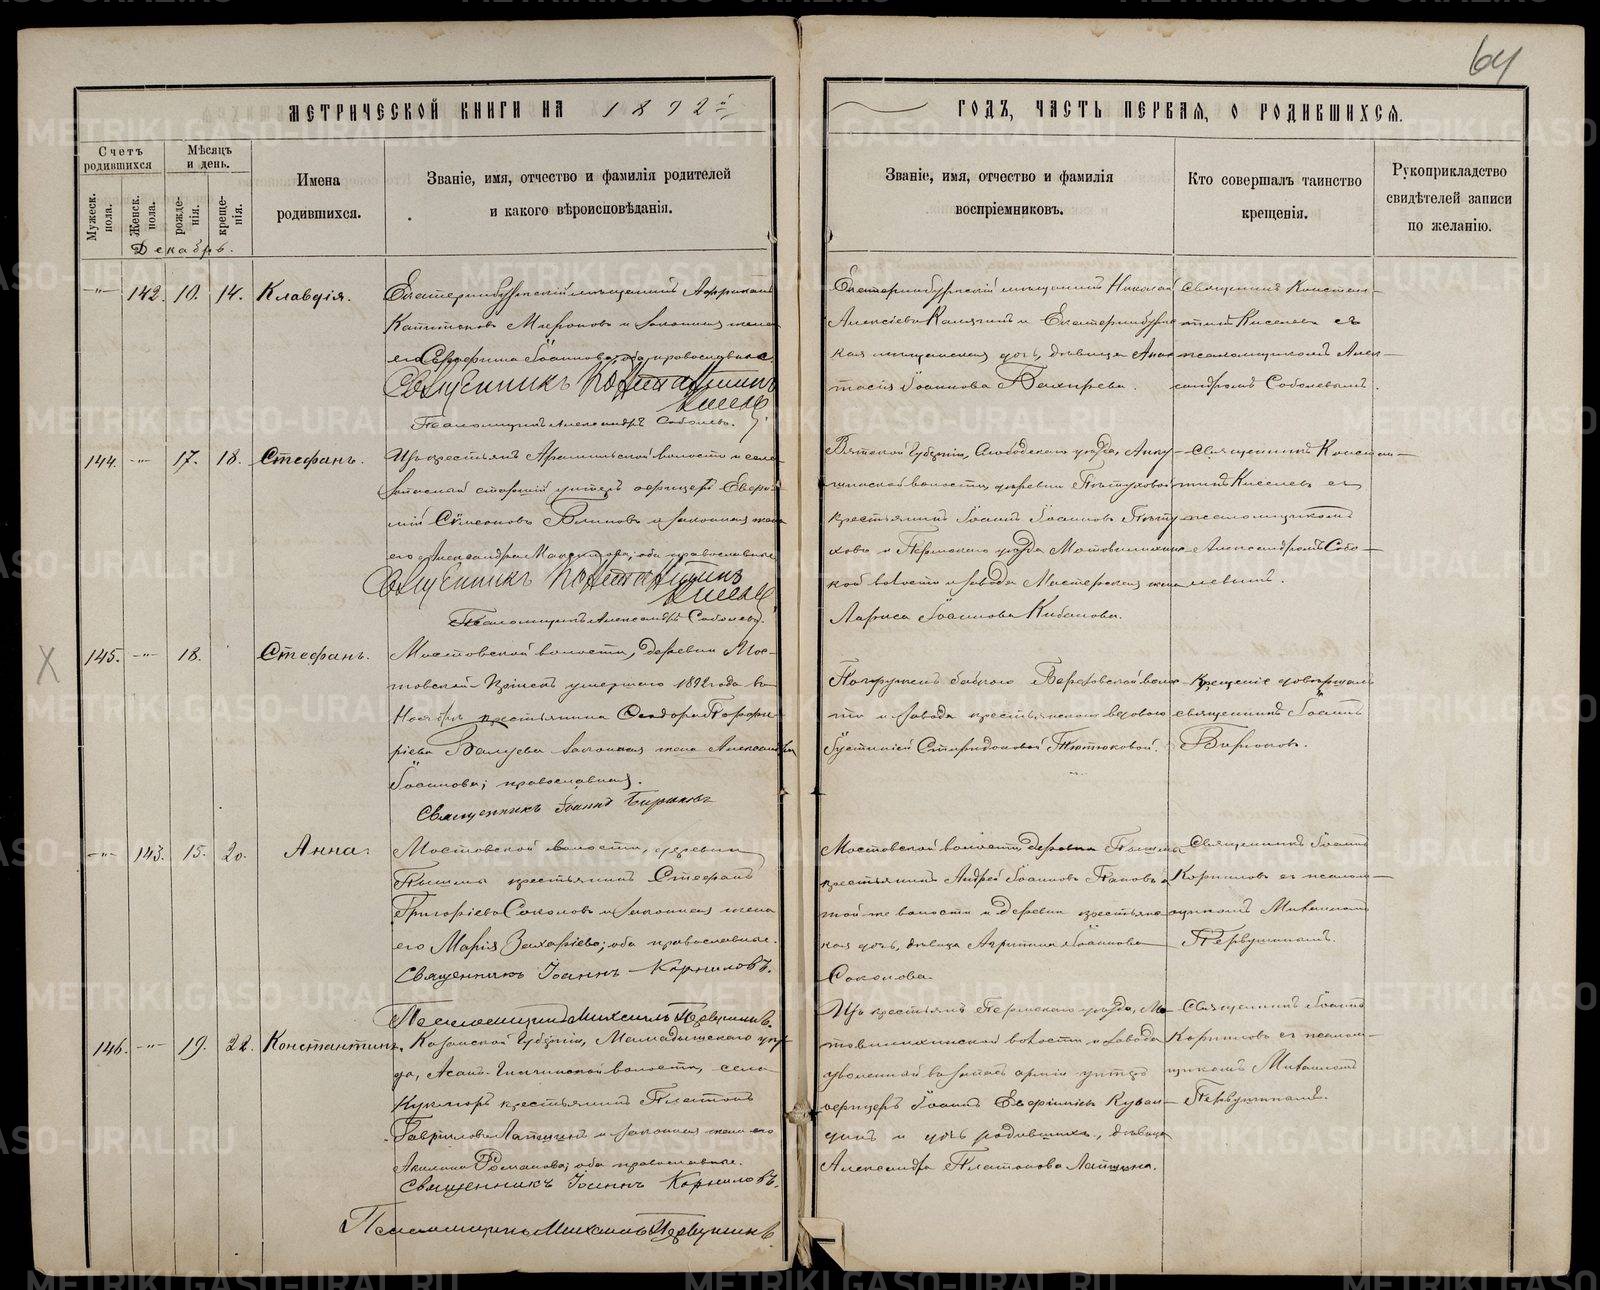 64
МЕТРИЧЕСКОЙ КНИГИ НА 1892 й
ГОДЪ, ЧАСТЬ ПЕРВАЯ, О РОДИВШИХСЯ.
Счетъ родившихся
Мужеск. пола.
Женск. пола.
Мѣсяцъ и день.
рожде-нія.
креще-нія.
Имена
родившихся.
Званіе, имя, отчество и фамилія родителей
и какого вѣроисповѣданія.
Званіе, имя, отчество и фамилія
воспріемниковъ.
Кто совершалъ таинство
крещенія.
Рукоприкладство
свидѣтелей записи
по желанію.
Декабрь.
142. 10. 14. Клавдія.
Екатеринбургскій мѣщанинъ Африканъ
Капитоновъ Мироновъ и законная жена
его Серафима Іоаннова, оба православные
Священникъ Константинъ
Киселевъ
Псаломщикъ Александръ Соболевъ.
Екатеринбургскій мѣщанинъ Николай
Алексіевъ Калягинъ и Екатеринбургс
кая мѣщанская дочь, дѣвица Анас
тасія Іоаннова Бахирева.
Священникъ Констан-
тинъ Киселевъ съ
псаломщикомъ Алек-
сандромъ Соболевымъ.
144. 17. 18. Стефанъ.
Изъ крестьянъ Арамильской волости и села
запасный старшій унтеръ офицеръ Евфи-
мій Сѵмеоновъ Блиновъ и законная жена
его Александра Максимова; оба православные
Священникъ Константинъ
Киселевъ
Псаломщикъ Александръ Соболевъ.
Вятской губерніи, Слободскаго уѣзда,
волости, деревни Пѣтуховой
крестьянинъ Іоаннъ Іоанновъ Пѣту
ховъ и Пермскаго уѣзда Мотовилихинс
кой волости и завода Мастерская жена
Лариса Іоаннова Кибанова.
Священникъ Констан-
тинъ Киселевъ съ
псаломщикомъ
Александромъ Собо-
левымъ.
X 145. 18. Стефанъ.
Мостовской волости, деревни Мос-
товской умершаго 1892 года въ
Ноябрѣ крестьянина Ѳеодора Порфи-
ріева Балуева законная жена Александра
Іоаннова; православная.
Священникъ Іоаннъ Бирюковъ
Погруженъ бабкою Березовской волос
ти и завода крестьянскою вдовою
Іустиніей Спиридоновой Тютюковой.
Крещеніе довершалъ
священникъ Іоаннъ
Бирюковъ.
143. 15. 20. Анна.
Мостовской волости, деревни
Пышмы крестьянинъ Стефанъ
Григоріевъ Соколовъ и законная жена
его Марія Захаріева; оба православные.
Священникъ Іоаннъ Корниловъ.
Псаломщикъ Михаилъ Первушинъ.
Мостовской волости, деревни Пышмы
крестьянинъ Андрей Іоанновъ Пановъ и
той же волости и деревни крестьянс
кая дочь, дѣвица Агриппина Іоаннова
Соколова.
Священникъ Іоаннъ
Корниловъ съ псалом-
щикомъ Михаиломъ
Первушинымъ.
146. 19. 22. Константинъ.
Казанской губерніи, Мамадышскаго уѣз-
да, волости, села
Кукморъ крестьянинъ Платонъ
Гавриловъ Лапшинъ и законная жена его
Акилина Романова; оба православные.
Священникъ Іоаннъ Корниловъ.
Псаломщикъ Михаилъ Первушинъ.
Изъ крестьянъ Пермскаго уѣзда, Мо-
товилихинской волости и завода
уволенный въ запасъ арміи унтеръ
офицеръ Іоаннъ Евфиміевъ
и дочь родившихъ, дѣвица
Александра Платонова Лапшина.
Священникъ Іоаннъ
Корниловъ съ псалом-
щикомъ Михаиломъ
Первушинымъ.
METRIKI.GASO-URAL.RU